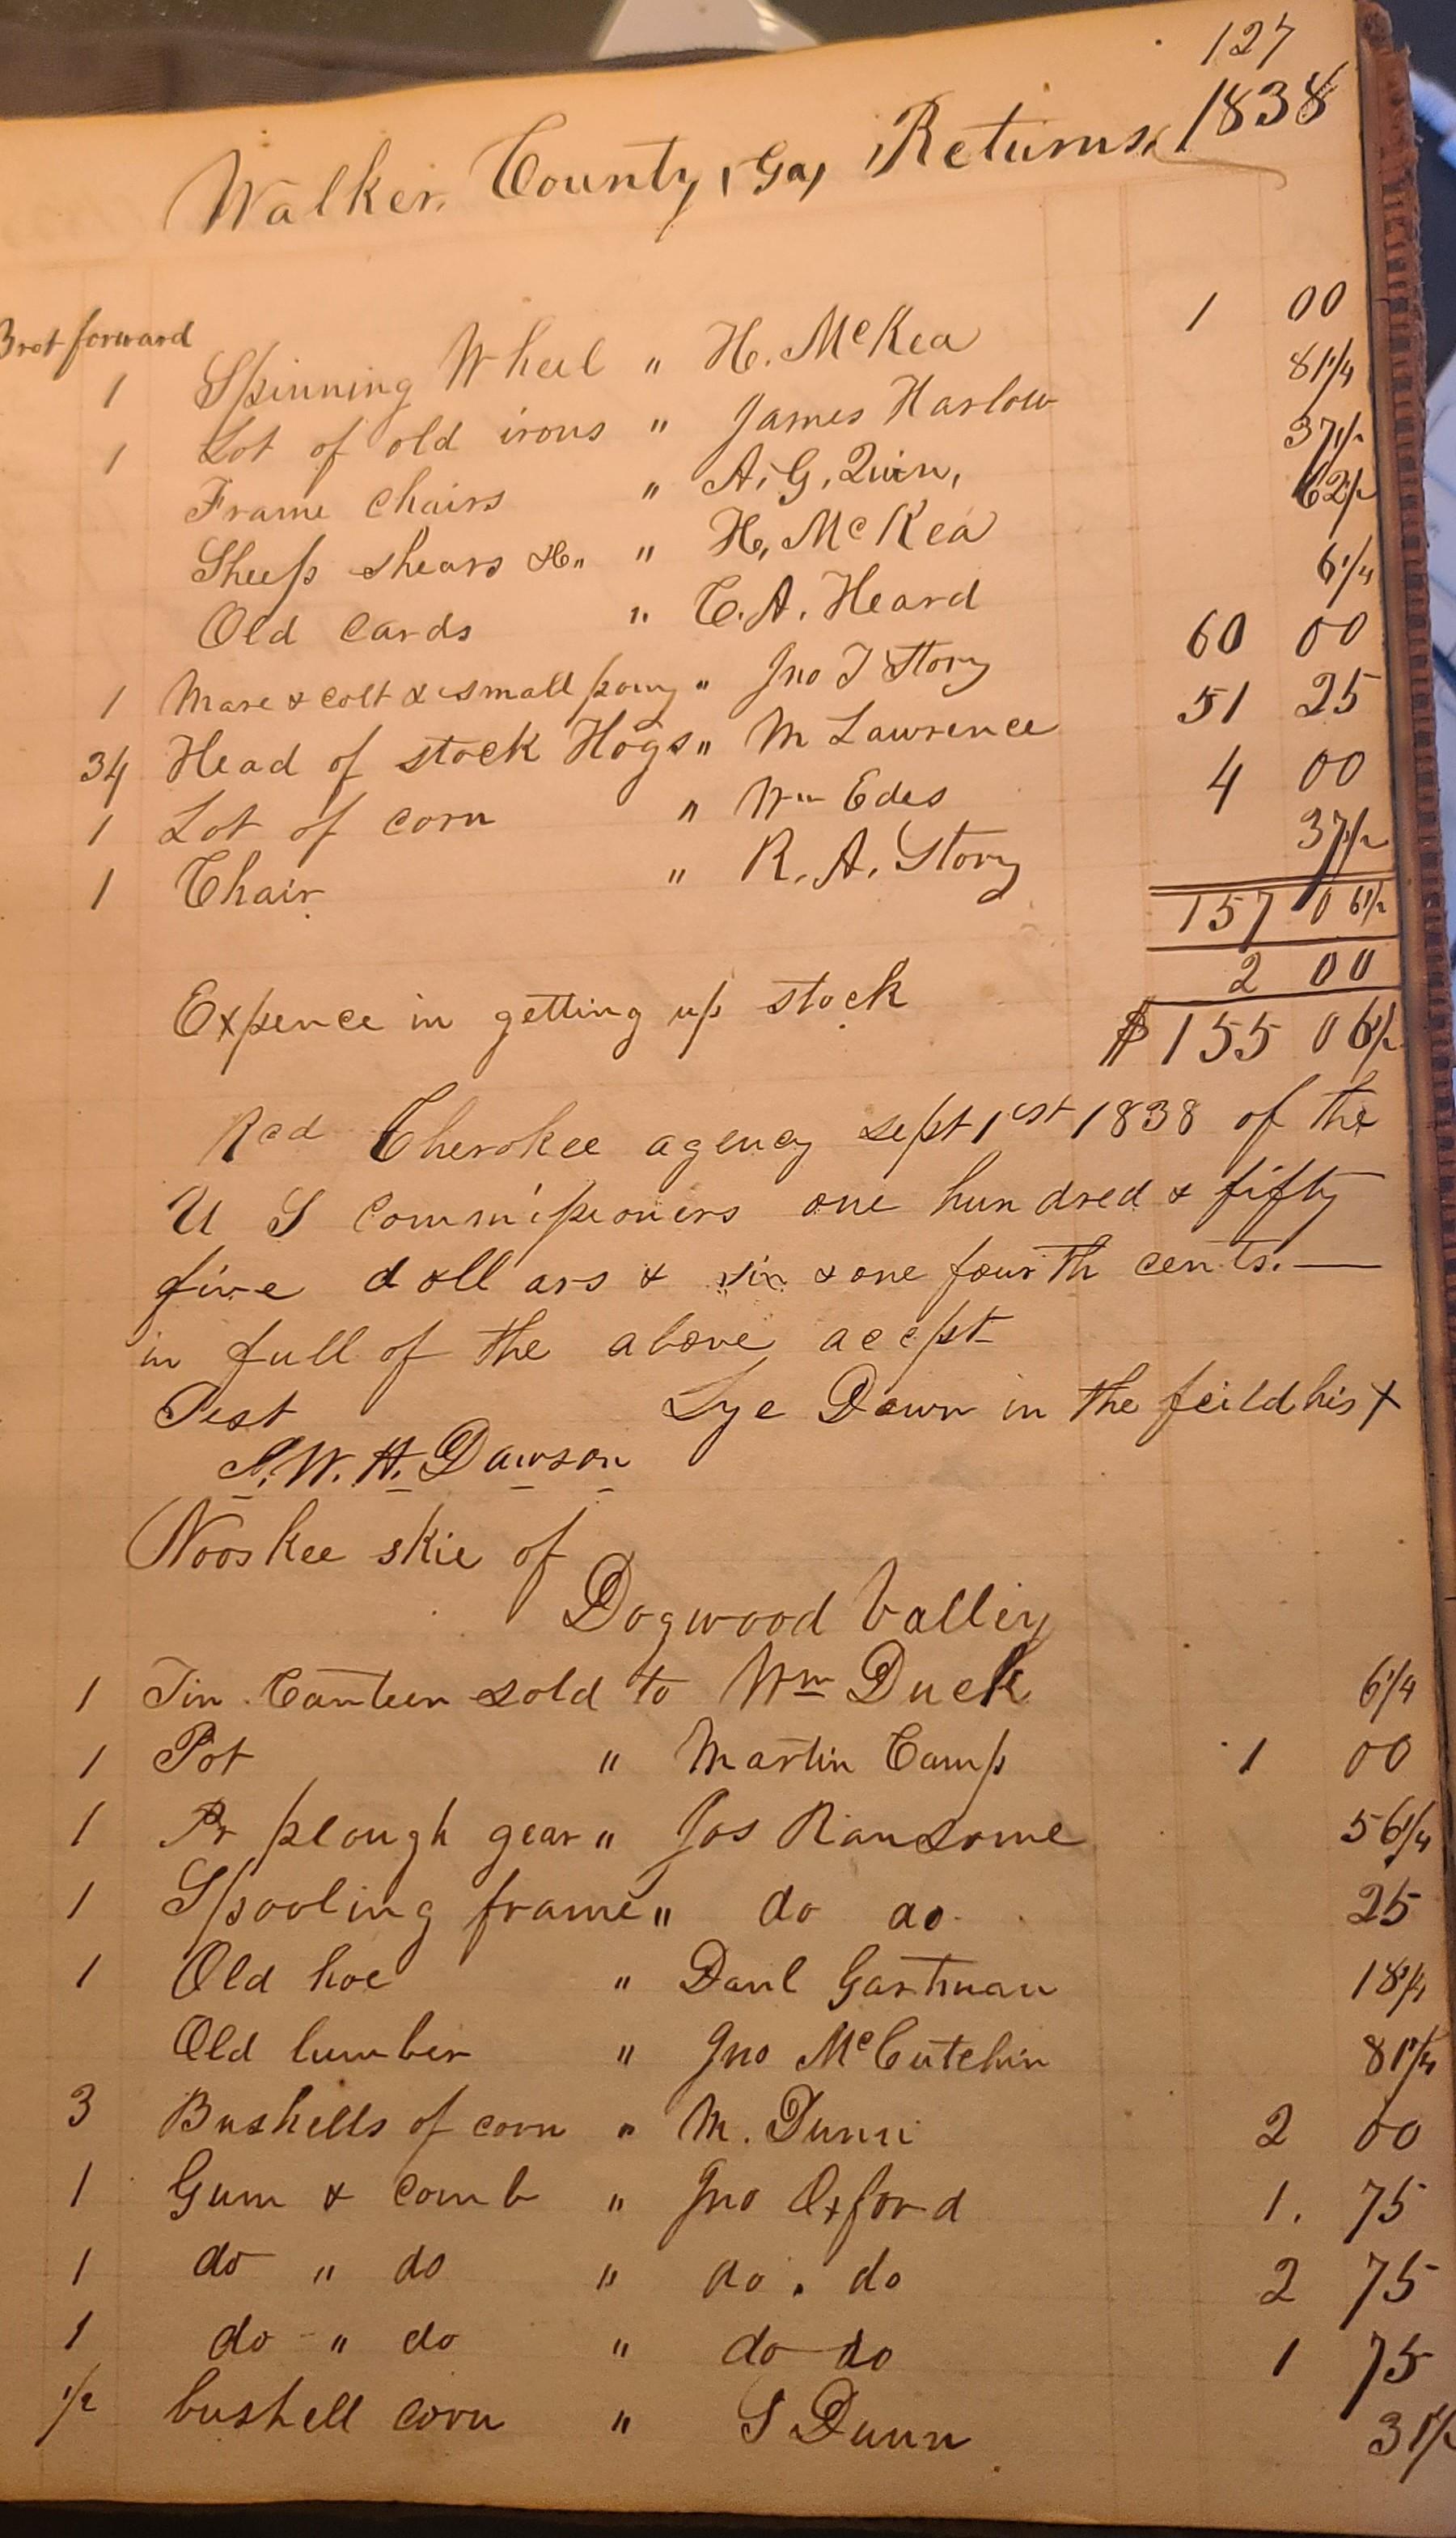 127
Walker County, Ga, Returns, 1838
Brot forward
1 Spinning Wheel " H. McKea 1 00
1 Lot of old irons " James Harlow 81 1/4
Frame chairs " A. G. Quin, 37 1/2
Sheep shears &c " H. McKea 62 1/2
Old cards " C. A. Heard 6 1/4
1 Mare & colt & small pony " Jno T Story 60 00
34 Head of stock Hogs " M Lawrence 51 25
1 Lot of corn " Wm Edes 4 00
1 Chair " R. A. Story 37 1/2
157 06 1/2
Expence in getting up stock 2 00
$155 06 1/2
Rcd Cherokee agency sept 1est 1838 of the
U S commissioners one hundred & fifty
five dollars & six & one fourth cents. —
in full of the above accpt
Test Lye Down in the feild his X
S. W. H. Dawson
Nooskee skie of
Dogwood Valley
1 Tin Canteen sold to Wm Duck 6 1/4
1 Pot " Martin Camp 1 00
1 Pr plough gear " Jos Ransome 56 1/4
1 Spooling frame " do do 25
1 Old hoe " Danl Gartman 18 3/4
Old lumber " Jno McCutchin 81 1/4
3 Bushells of corn " M. Dunn 2 00
1 Gum & comb " Jno Oxford 1. 75
1 do " do " do . do 2 75
1 do " do " do do 1 75
1/2 bushell corn " S Dunn 31 1/2